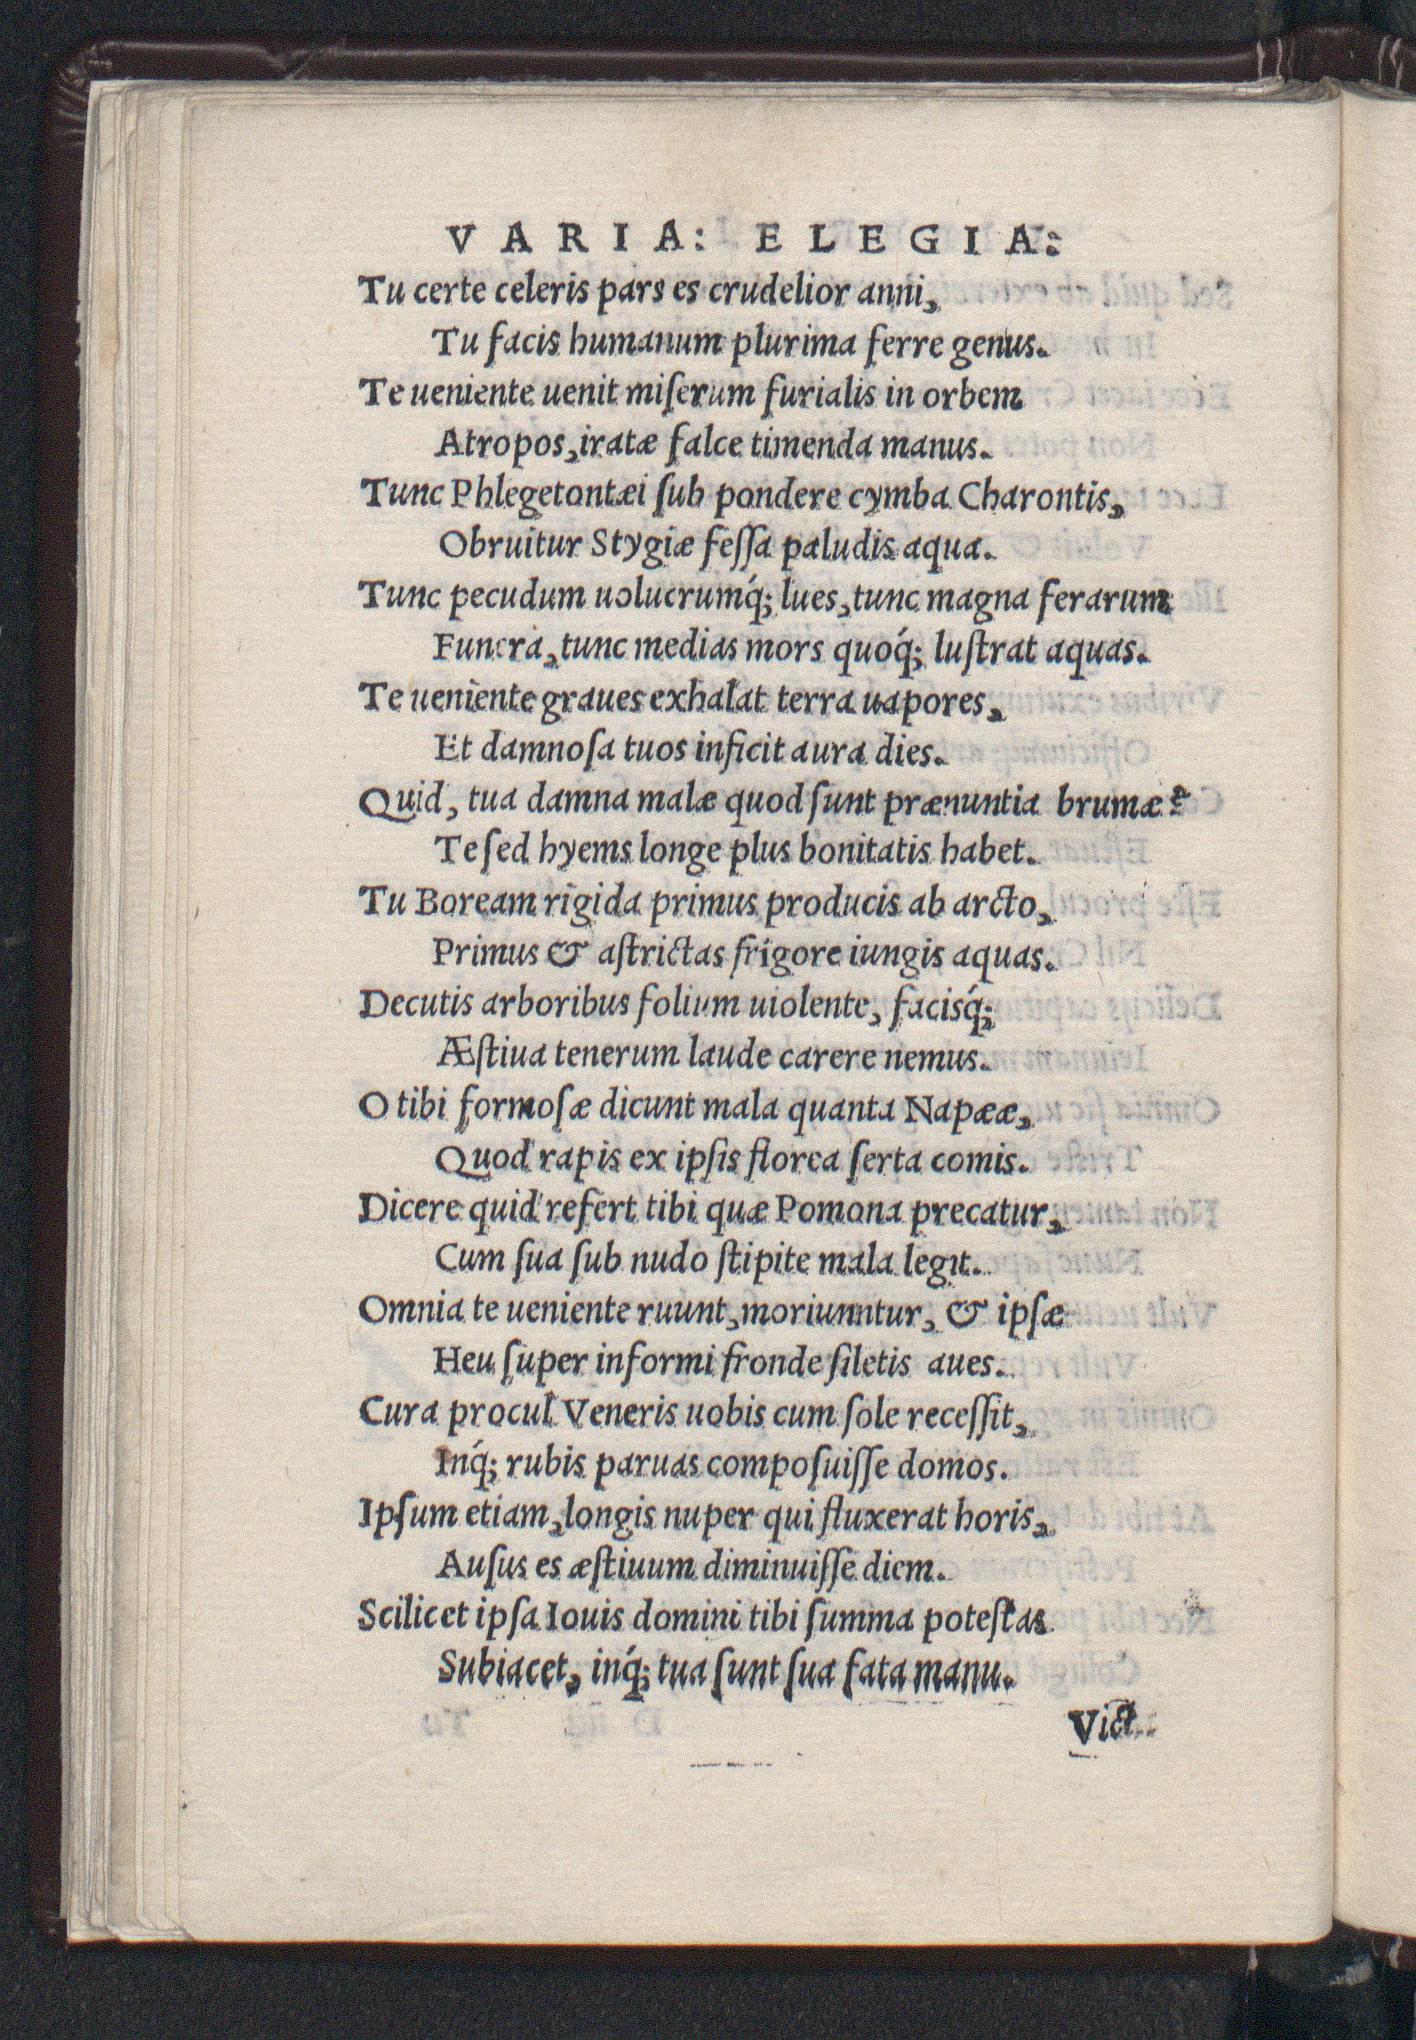 VARIA: ELEGIA:
Tu certe celeris pars es crudelior anni,
Tu facis humanum plurima ferre genus.
Te ueniente uenit miſerum furialis in orbem
Atropos, iratæ falce timenda manus.
Tunc Phlegetontæi ſub pondere cymba Charontis,
Obruitur Stygiæ feſſa paludis aqua.
Tunc pecudum uolucrumq́; lues, tunc magna ferarum
Funera, tunc medias mors quoq́; luſtrat aquas.
Te ueniente graues exhalat terra uapores,
Et damnoſa tuos inficit aura dies.
Quid, tua damna malæ quod ſunt prænuntia brumæ?
Te ſed hyems longe plus bonitatis habet.
Tu Boream rigida primus producis ab arcto,
Primus & aſtrictas frigore iungis aquas.
Decutis arboribus folium uiolente, facisq́;
Æſtiua tenerum laude carere nemus.
O tibi formoſæ dicunt mala quanta Napææ,
Quod rapis ex ipſis florea ſerta comis.
Dicere quid refert tibi quæ Pomona precatur,
Cum ſua ſub nudo ſtipite mala legit.
Omnia te ueniente ruunt, moriunntur, & ipſæ
Heu ſuper informi fronde ſiletis aues.
Cura procul Veneris uobis cum ſole receſſit,
Inq́; rubis paruas compoſuiſſe domos.
Ipſum etiam, longis nuper qui fluxerat horis,
Auſus es æſtiuum diminuiſſe diem.
Scilicet ipſa Iouis domini tibi ſumma poteſtas
Subiacet, inq́; tua ſunt ſua fata manu.
Vict